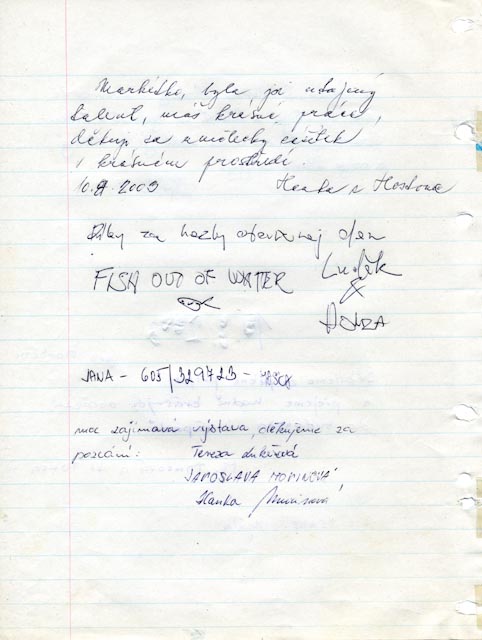 Markétko, byla jsi utajený
talent, máš krásné práce,
děkuji za umělecký zážitek
v krásném prostředí.
10.9.2009 Hanka z Hostivic
Díky za hezky otevřenej den
FISH OUT OF WATER Luděk
&
HONZA
JANA - 605/329723 -
moc zajímavá výstava, děkujeme za
pozvání: Tereza Lukešová
JAROSLAVA MORINOVÁ,
Hanka